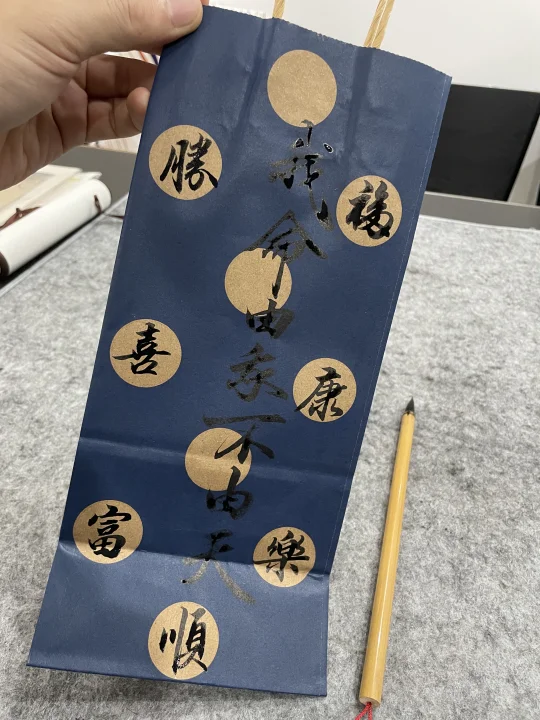 勝
福
我命由我不由天
喜
康
富
樂
順